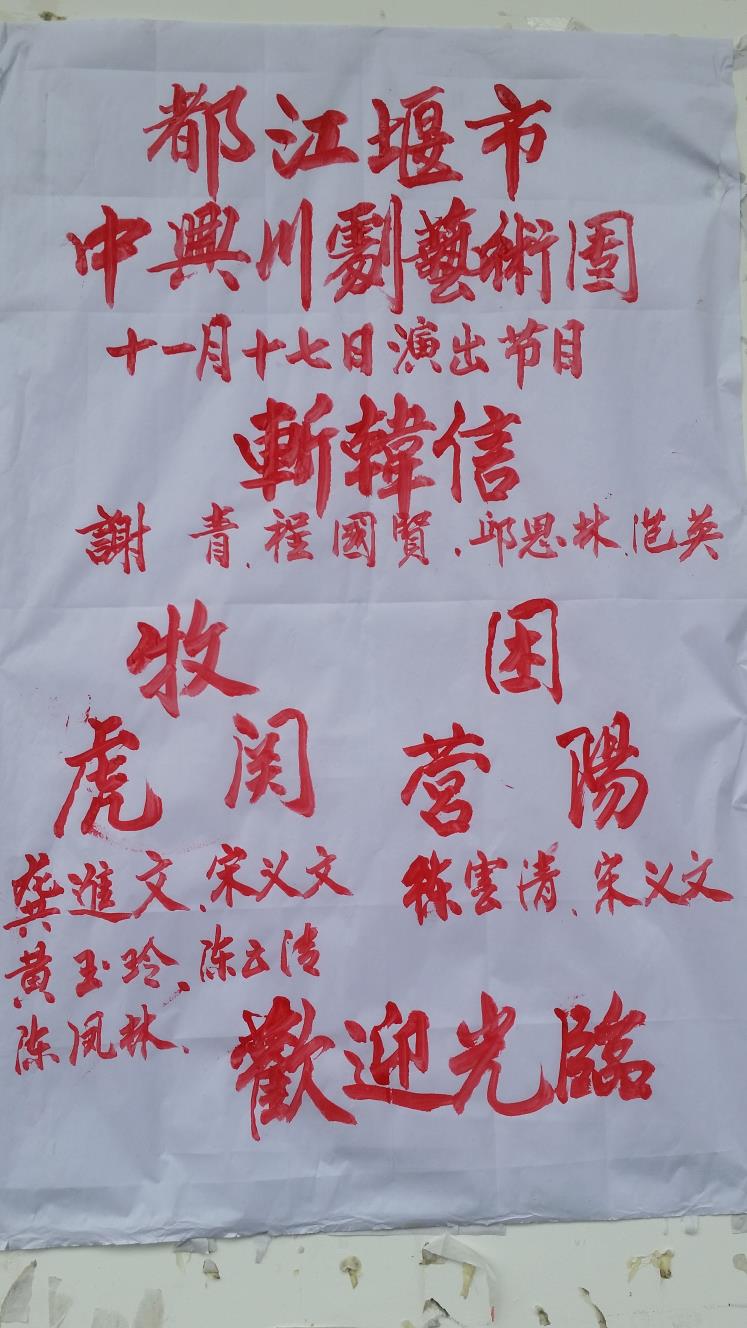 都江堰市
中興川劇藝術團
十一月十七日演出节目
斬韓信
謝青、程國賢、邱思林、范英
牧
虎关
龚進文、宋义文
黄玉玲、陈云清
陈凤林、
困
营陽
徐雲清、宋义文
歡迎光臨